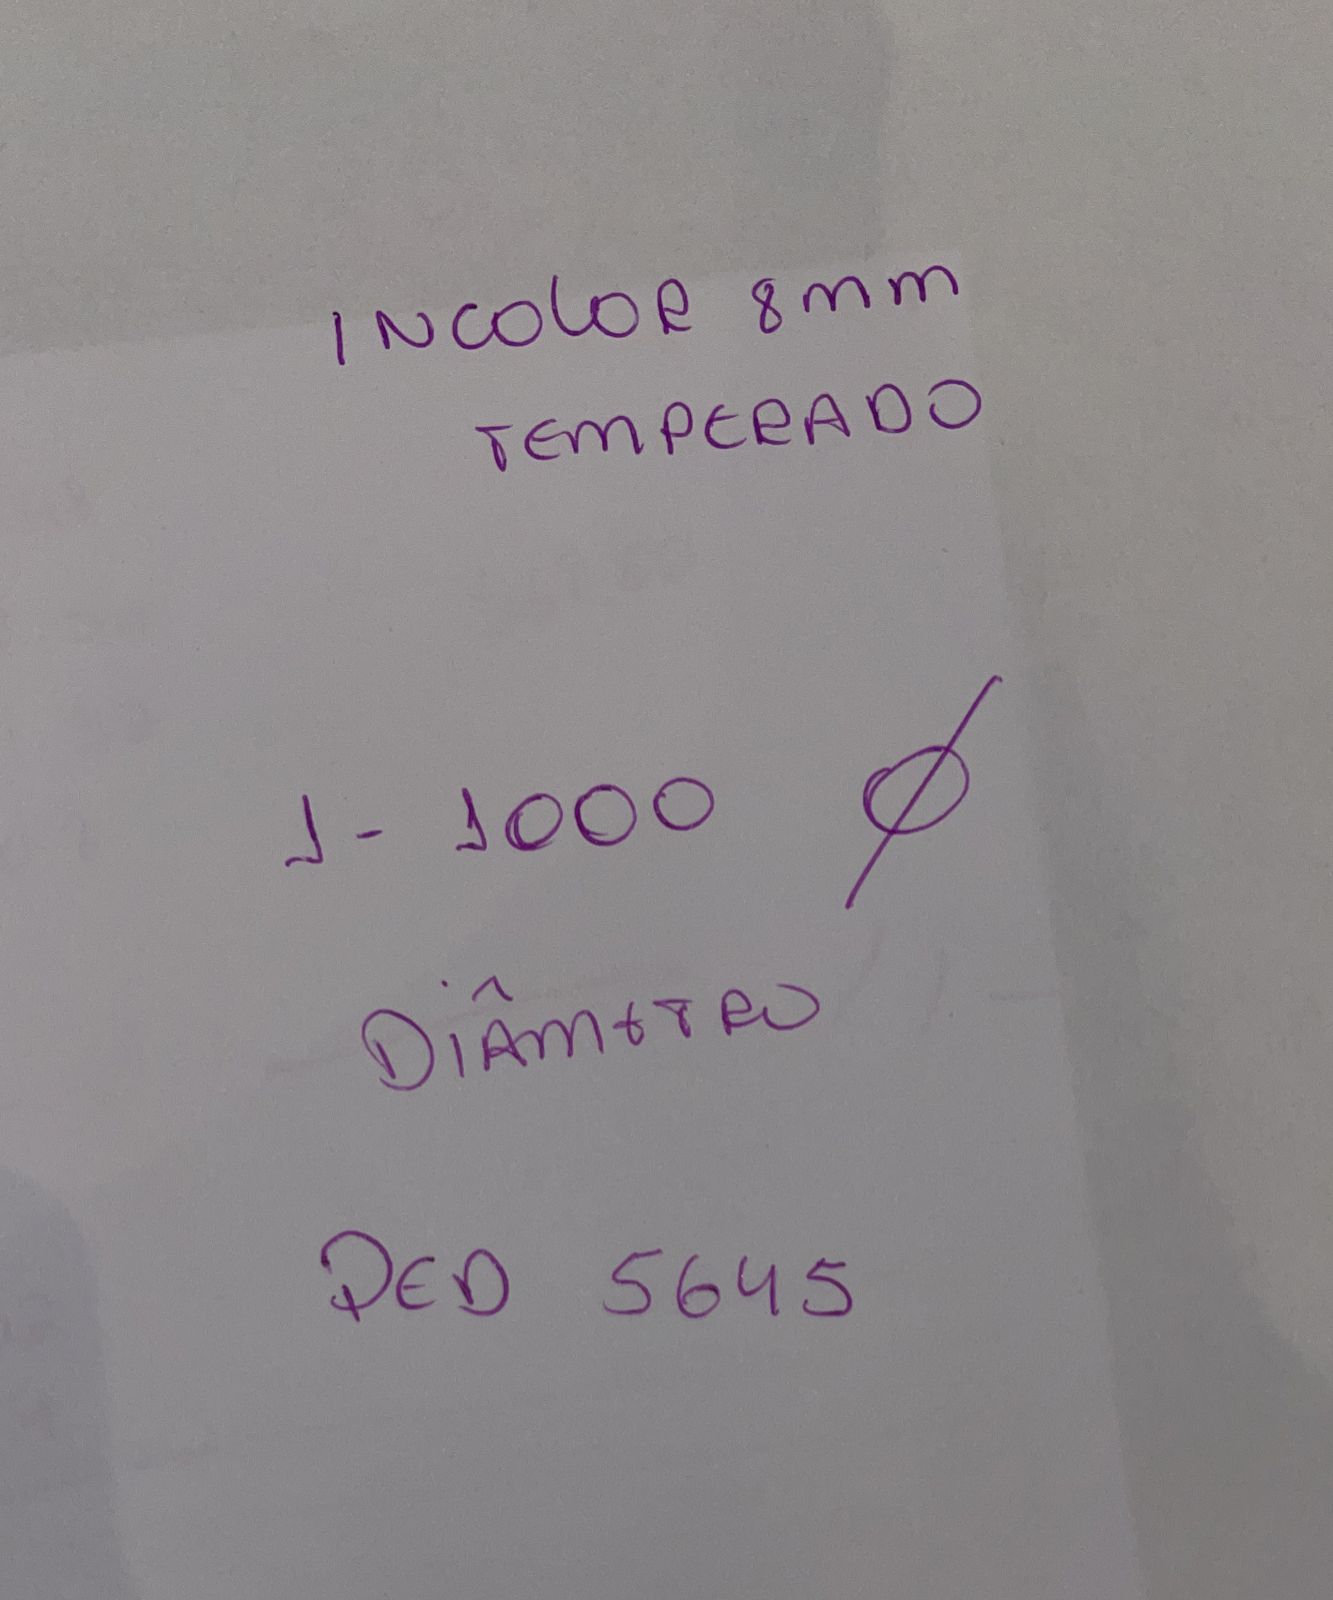 INCOLOR 8mm
TEMPERADO
1 - 1000 Ø
DIÂMETRO
PED 5645